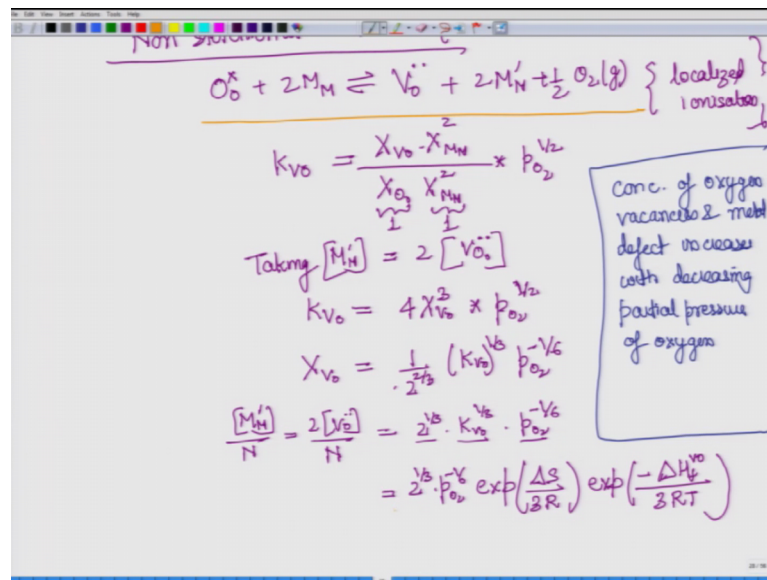 File Edit View Insert Actions Tools Help
Non
O_o^x + 2M_M ⇌ V_o^{••} + 2M_M' + 1/2 O_2(g) { localized
ionisation
K_{Vo} = (X_{Vo} · X_{MM}^2) / (X_{O_2} X_{MM}^2) * p_{O_2}^{1/2}
1 1
Taking [M_M'] = 2 [V_o^{••}]
K_{Vo} = 4X_{Vo}^3 * p_{O_2}^{1/2}
X_{Vo} = 1/2^{2/3} (K_{Vo})^{1/3} p_{O_2}^{-1/6}
[M_M']/N = 2[V_o^{••}]/N = 2^{1/3} · K_{Vo}^{1/3} · p_{O_2}^{-1/6}
= 2^{1/3} · p_{O_2}^{-1/6} exp(ΔS/3R) exp(-ΔH_f^{Vo}/3RT)
conc. of oxygen
vacancies & metal
defect increases
with decreasing
partial pressure
of oxygen